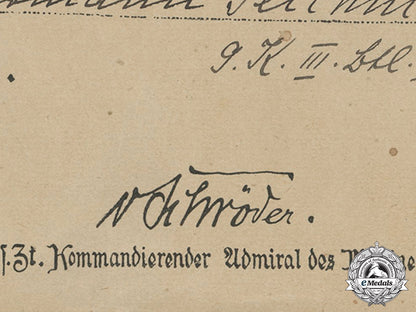 9. K. III. Btl.
v Schröder.
s. Zt. Kommandierender Admiral des
eMedals